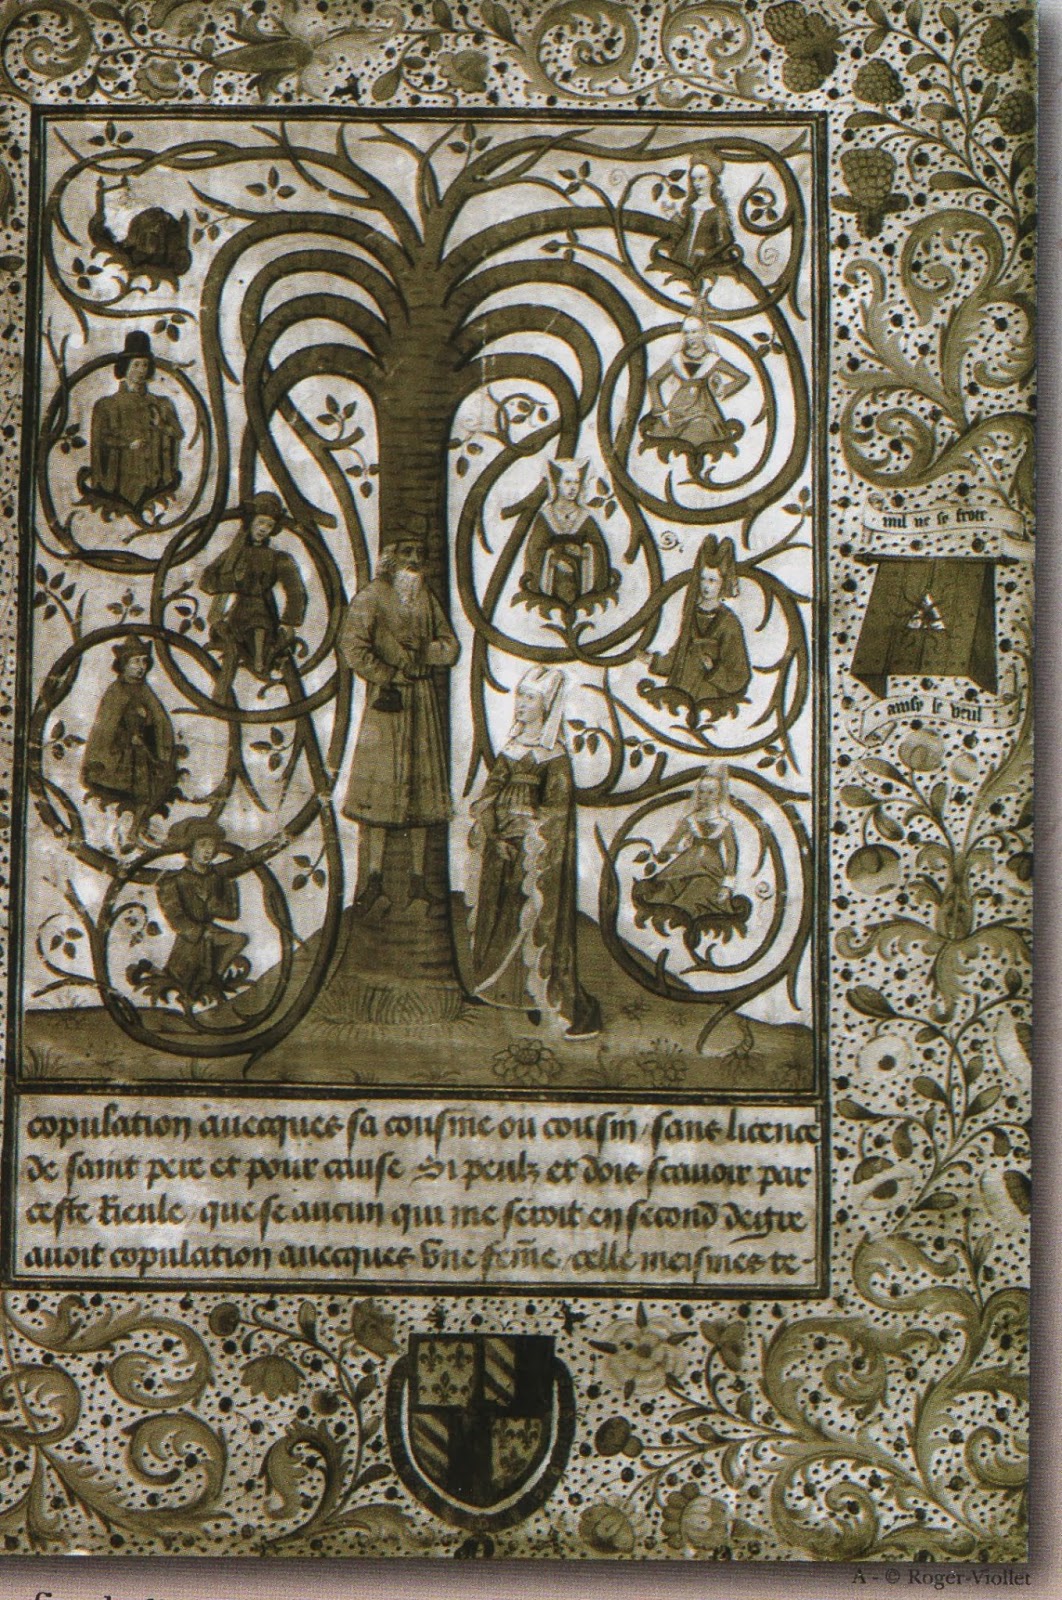 nul ne sy frote
ainsy le veul
copulation auecques sa cousine ou cousin / sans licence
de saint pere et pour cause Si peulz et dois scauoir par
ceste Rieule / que se aucun qui me seroit en second degre
auoit copulation auecques vne feme / celle meismes te-
A - © Roger-Viollet